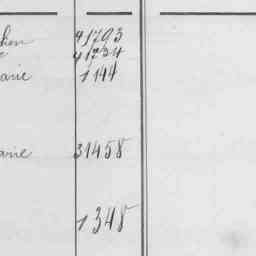 41793
41734
arie 1144
arie 31458
1348